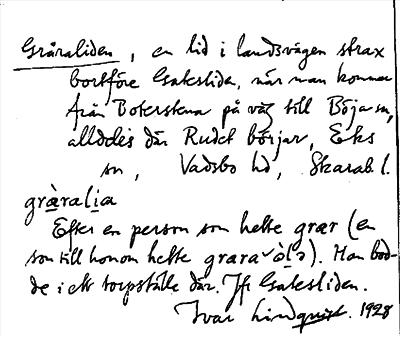 Gråraliden, en lid i landsvägen strax
bortföre Gatesliden, när man kommer
från Boterstena på väg till Böja sn,
alldeles där Rudet börjar, Eks
sn, Vadsbo hd, Skarab. l.
gràralịa
Efter en person som hette grar (en
son till honom hette grara). Han bod-
de i ett torpställe där. Jfr Gatesliden.
Ivar Lindquist. 1928